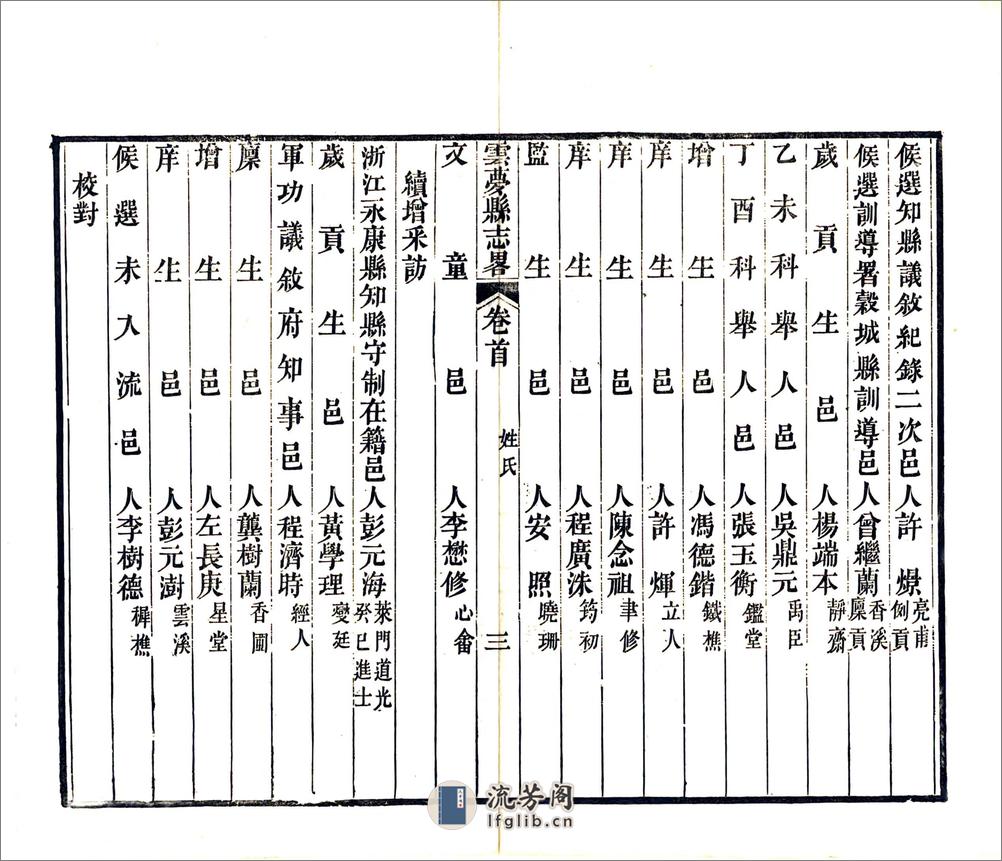 候選知縣議敘紀錄二次邑人許爃亮甫例貢
候選訓導署穀城縣訓導邑人曾繼蘭香溪廩貢
歲貢生邑人楊端本靜齋
乙未科舉人邑人吳鼎元禹臣
丁酉科舉人邑人張玉衡鑑堂
增生邑人馮德鍇鐵樵
庠生邑人許煇立人
庠生邑人陳念祖聿修
庠生邑人程廣洙筠初
監生邑人安照曉珊
雲夢縣志畧 卷首 姓氏 三
文童邑人李懋修心畬
續增采訪
浙江永康縣知縣守制在籍邑人彭元海萊門道光癸巳進士
歲貢生邑人黃學理燮廷
軍功議敘府知事邑人程濟時經人
廩生邑人龔樹蘭香圃
增生邑人左長庚星堂
庠生邑人彭元澍雲溪
候選未入流邑人李樹德樨樵
校對
流芳阁
lfglib.cn